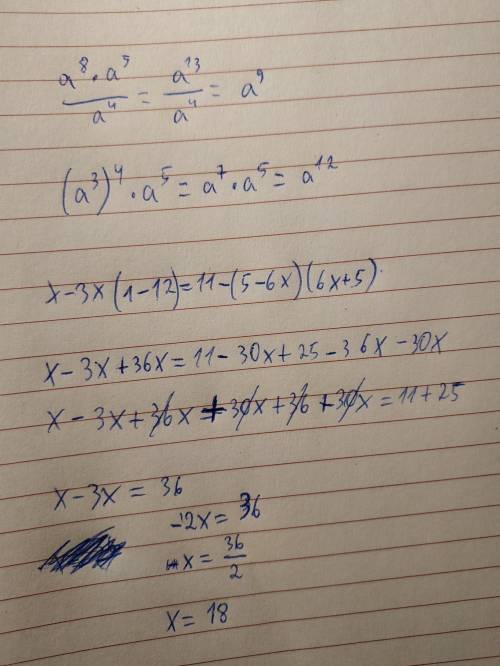 a⁸·a⁵/a⁴ = a¹³/a⁴ = a⁹
(a³)⁴·a⁵ = a⁷·a⁵ = a¹²
x-3x(1-12)=11-(5-6x)(6x+5)
x-3x+36x=11-30x+25-36x-30x
x-3x+36x+30x+36+30x=11+25
x-3x=36
-2x=36
x=36/2
x=18